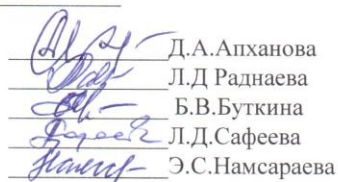 Д.А.Апханова
Л.Д Раднаева
Б.В.Буткина
Л.Д.Сафеева
Э.С.Намсараева